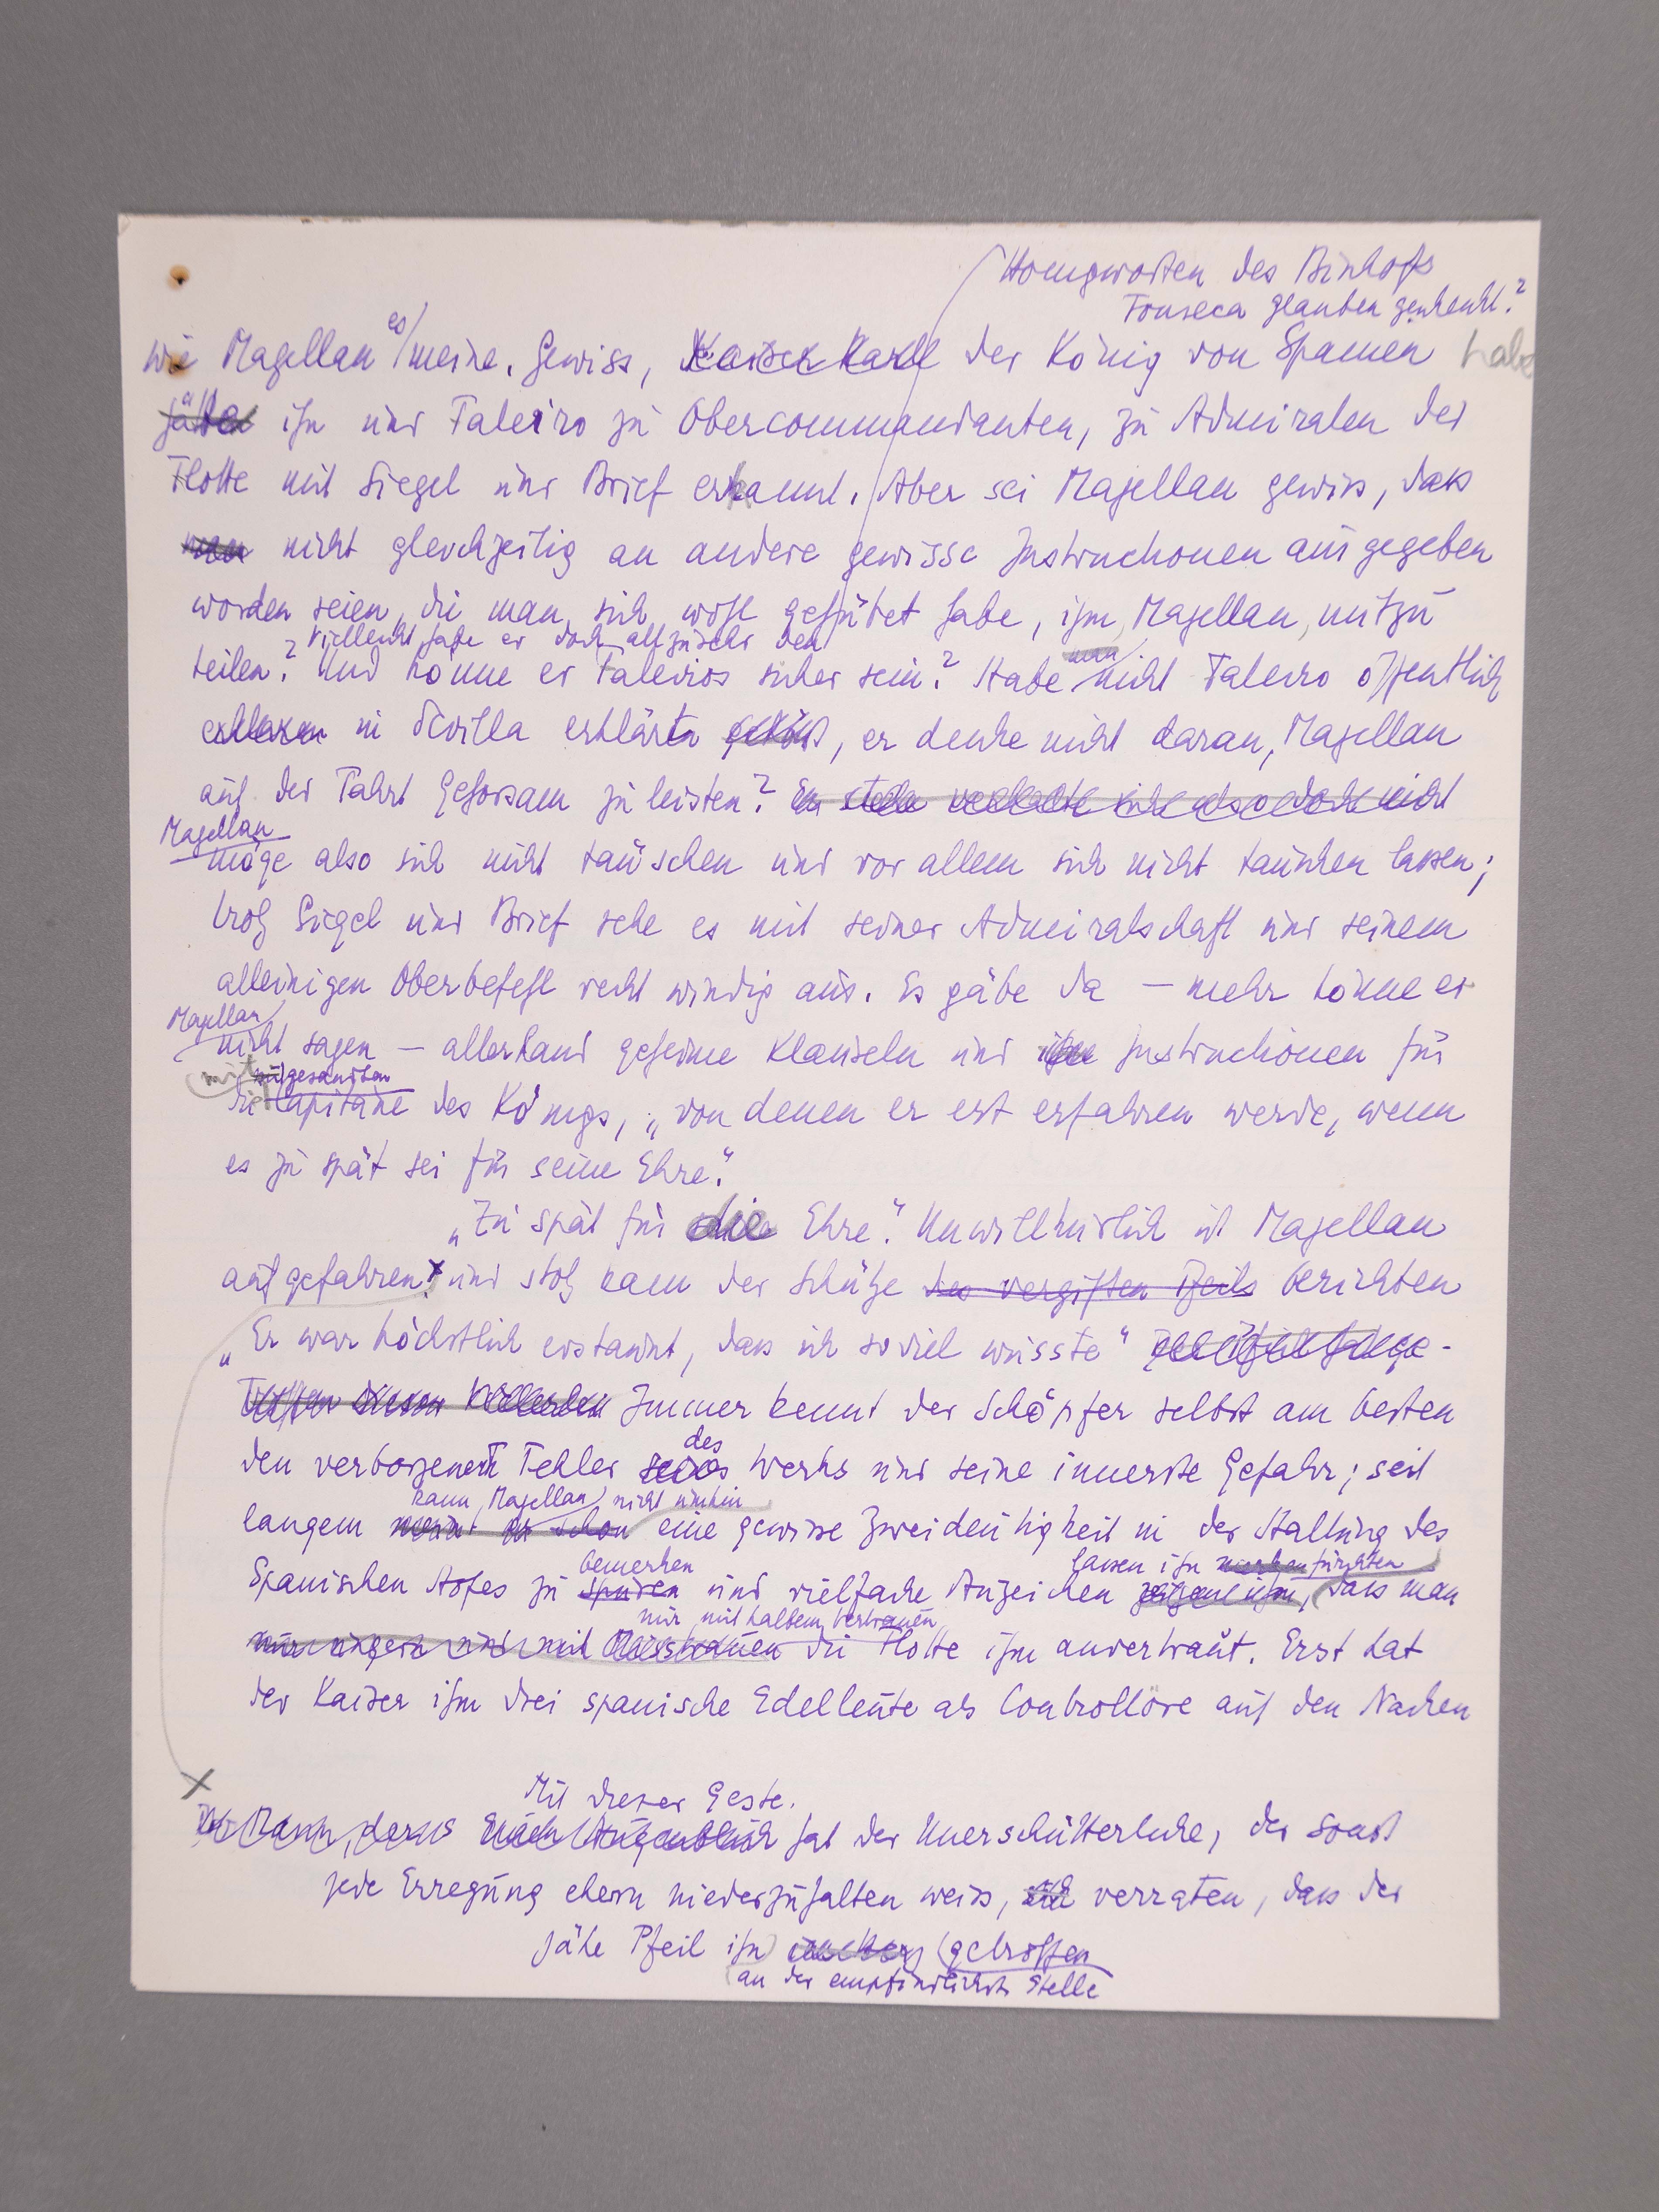 Honigworten des Bischofs
Fonseca glauben geschenkt?
es
wie Magellan meine. Gewiss, Kaiser Karl der König von Spanien habe
hätte ihn und Faleiro zu Obercommandanten, zu Admiralen der
Flotte mit Siegel und Brief ernannt. Aber sei Magellan gewiss, dass
man nicht gleichzeitig an andere gewisse Instructionen ausgegeben
worden seien, die man sich wohl gehütet habe, ihm, Magellan, mitzu
Vielleicht habe er doch allzusehr den
man
teilen? Und könne er Faleiros sicher sein? Habe nicht Faleiro öffentlich
in Sevilla erklärt, er denke nicht daran, Magellan
auf der Fahrt Gehorsam zu leisten?
Magellan
möge also sich nicht täuschen und vor allem sich nicht täuschen lassen;
trotz Siegel und Brief sehe es mit seiner Admiralschaft und seinem
alleinigen Oberbefehl recht windig aus. Es gäbe da – mehr könne er
Magellan
nicht sagen – allerhand geheime Klauseln und Instructionen für
mitgesandten
die Capitäne des Königs, „von denen er erst erfahren werde, wenn
es zu spät sei für seine Ehre“.
„Zu spät für die Ehre“. Unwillkürlich ist Magellan
aufgefahren x und stolz kann der Schütze des vergifteten Pfeils berichten
„Er war höchstlich erstaunt, dass ich soviel wusste“
Immer kennt der Schöpfer selbst am besten
des
den verborgenen Fehler seines Werks und seine innerste Gefahr; seit
kann Magellan nicht umhin
langem eine gewisse Zweideutigkeit in der Haltung des
bemerken
lassen ihn merken fürchten
Spanischen Hofes zu spüren und vielfache Anzeichen, dass man
nur mit halbem Vertrauen
nur ungern und mit Misstrauen die Flotte ihm anvertraut. Erst hat
der Kaiser ihm drei spanische Edelleute als Controllöre auf den Nacken
x
Mit dieser Geste.
hat der Unerschütterliche, der sonst
jede Erregung ehern niederzuhalten weiss, verraten, dass der
jähe Pfeil ihn getroffen
an der empfindlichsten Stelle